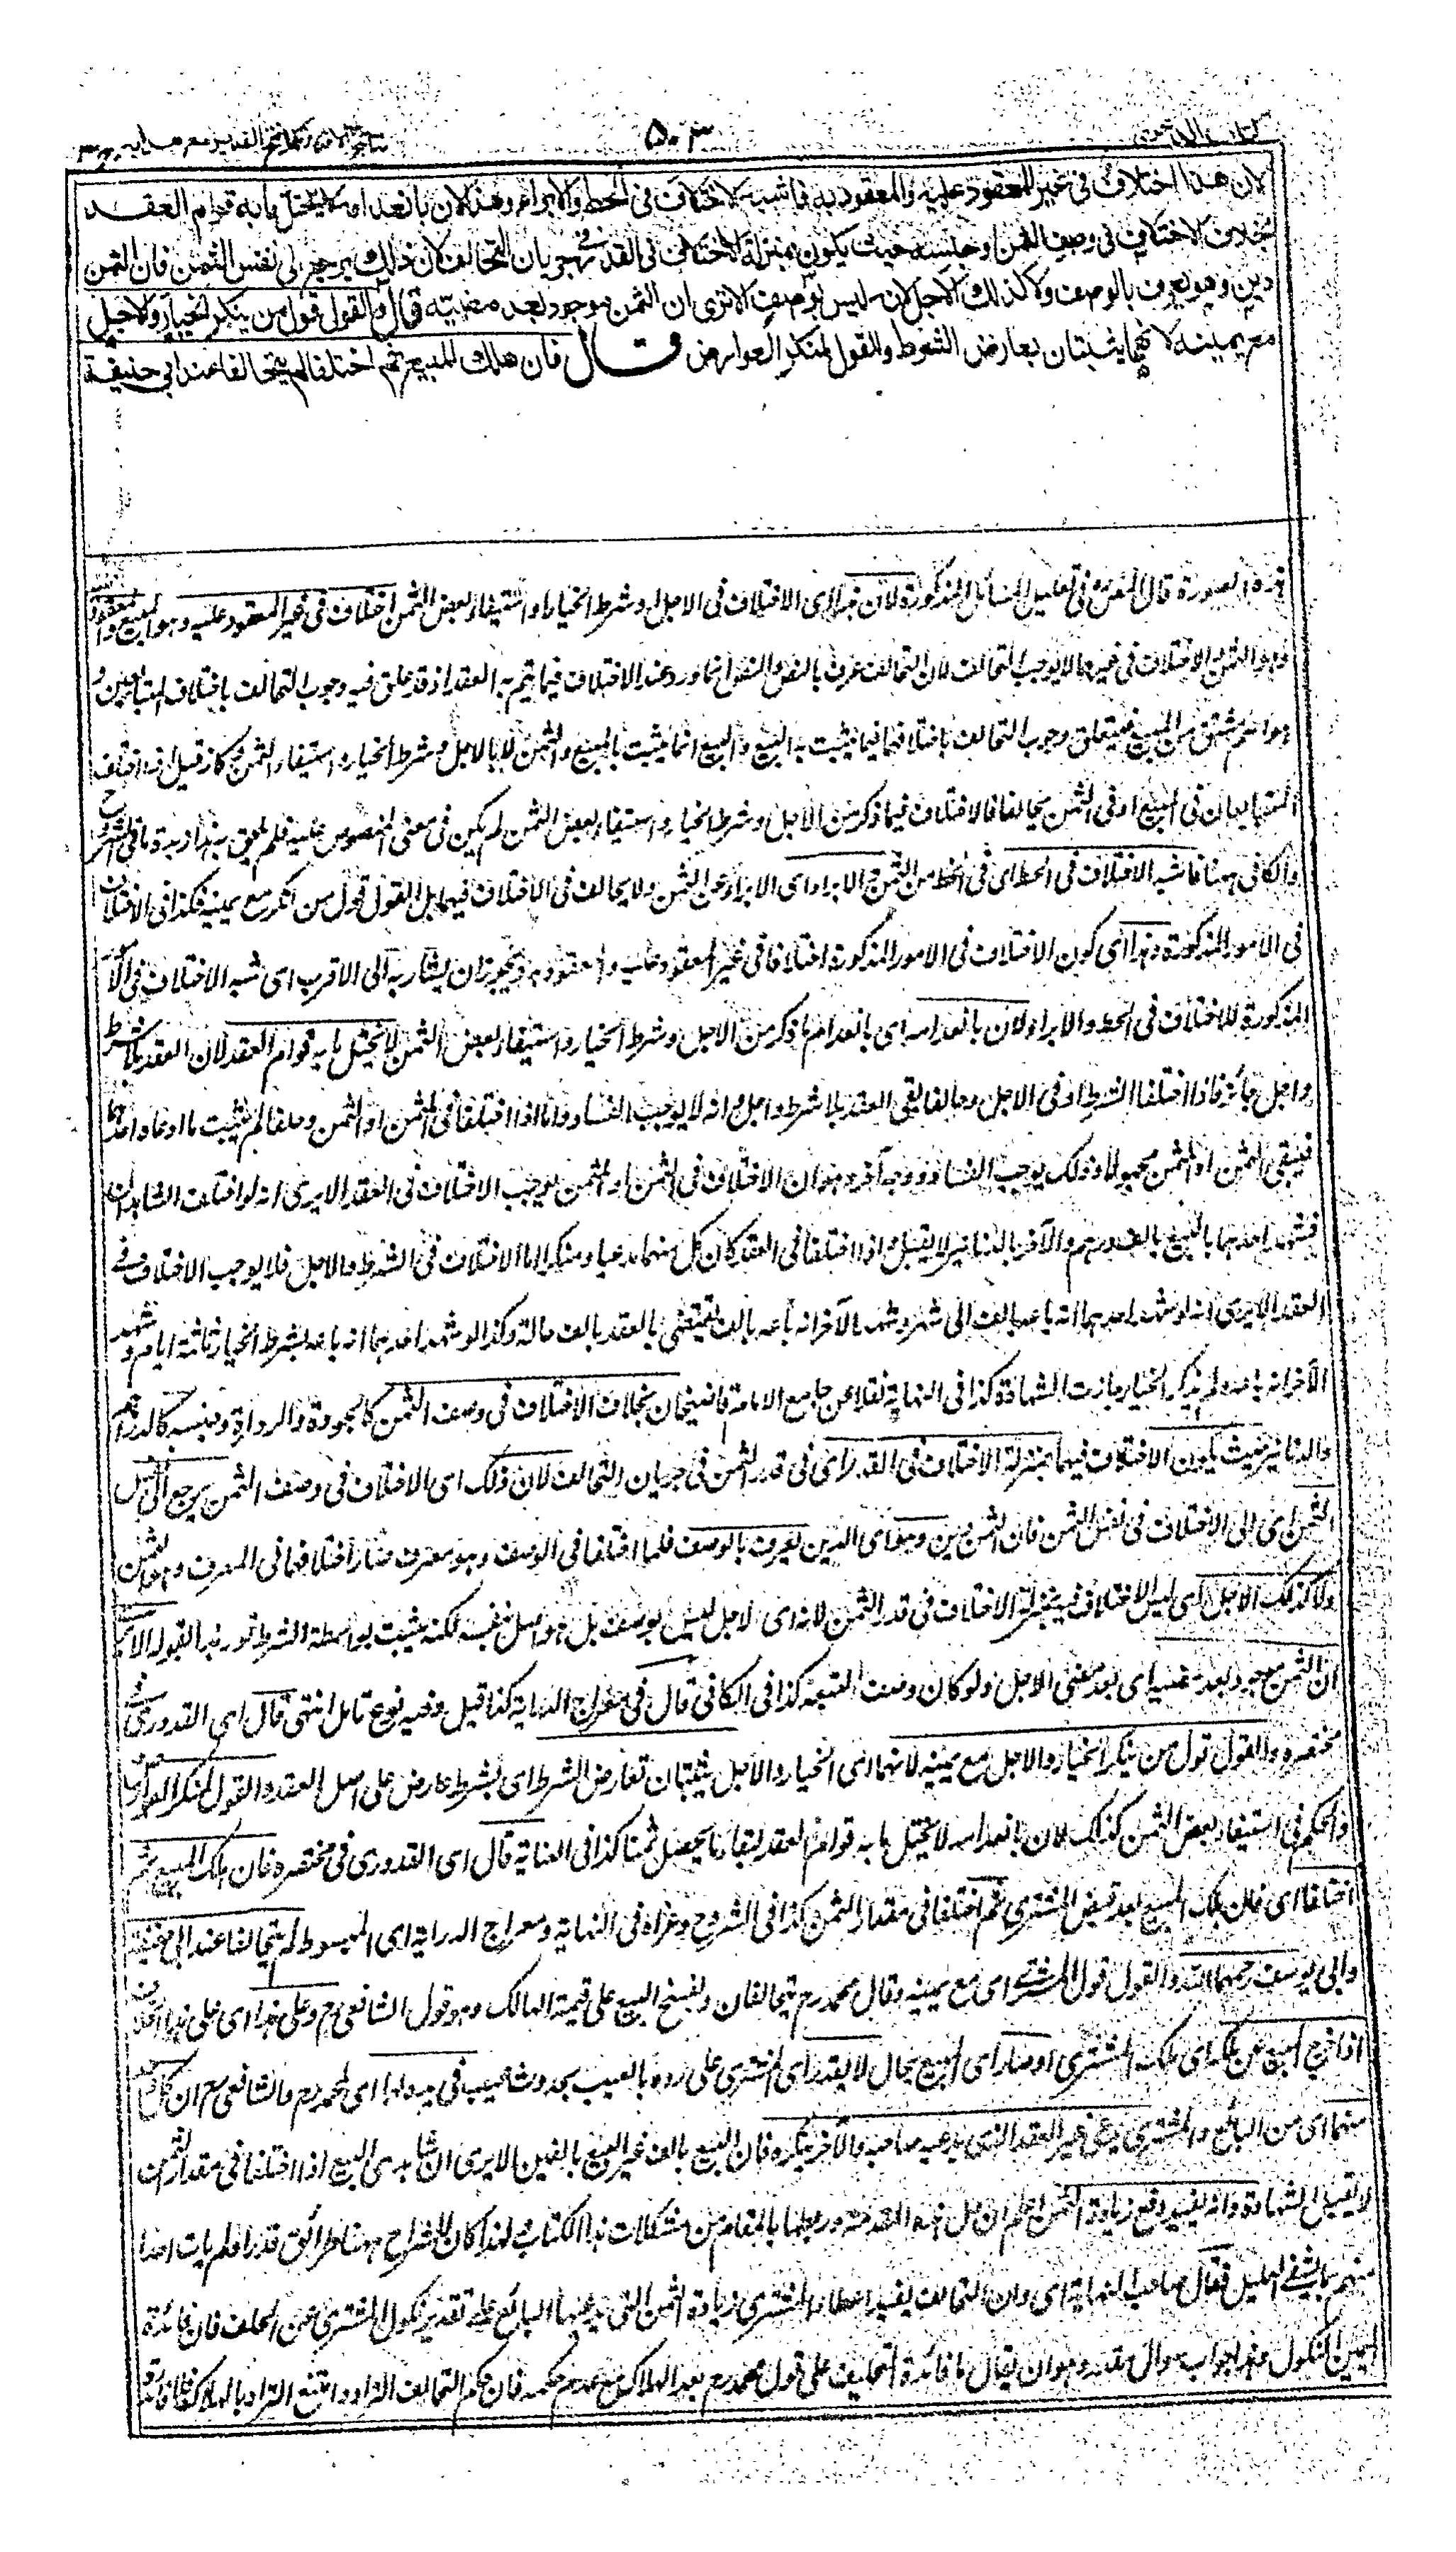 كتاب الدعوى
٥٠٣
نتائج الافكار تكملة فتح القدير مع هدايه ج ٣
لان هذا اختلاف في غير المعقود عليه والمعقود به فاشبه الاختلاف في الحط والابراء وهذا لان بانعدامه لا يختل ما به قوام العقد
بخلاف الاختلاف في وصف الثمن او جنسه حيث يكون بمنزلة الاختلاف في القدر في جريان التحالف لان ذلك يرجع الى نفس الثمن فان الثمن
دين وهو يعرف بالوصف ولا كذلك الاجل لانه ليس بوصف الا ترى ان الثمن موجود بعد مضيته قال والقول قول من ينكر الخيار والاجل
مع يمينه لانهما يثبتان بعارض الشرط والقول لمنكر العوارض قال فان هلك المبيع ثم اختلفا لم يتحالفا عند ابي حنيفة
هذه الصورة قال المص في تعليل المسائل المذكورة لان هذا اى الاختلاف في الاجل وشرط الخيار او استيفاء بعض الثمن اختلاف في غير المعقود عليه وهو المبيع والمعقود
وهو الثمن والاختلاف في غيرهما لا يوجب التحالف لان التحالف عرف بالنص والنص انما ورد عند الاختلاف فيما يتم به العقد اذ قد علق فيه وجوب التحالف باختلاف المتبايعين
وهو اسم مشتق من البيع فيتعلق وجوب التحالف باختلافهما فيما يثبت به البيع والبيع انما يثبت بالمبيع والثمن لا بالاجل وشرط الخيار واستيفاء الثمن وكانه قيل اذا اختلف
المتبايعان في المبيع او في الثمن تحالفا فالاختلاف فيما ذكر من الاجل وشرط الخيار واستيفاء بعض الثمن لم يكن في معنى المنصوص عليه فلم يلحق به هذا زبدة ما في الشروح
والكافي ههنا فاشبه الاختلاف في الحط اى في الحط من الثمن والابراء اى الابراء عن الثمن ولا يحالف في الاختلاف فيهما بل القول قول من انكر مع يمينه فكذا في الاختلاف
في الامور المذكورة وهذا اى كون الاختلاف في الامور المذكورة اختلافا في غير المعقود عليه والمعقود به ويجوز ان يشار به الى الاقرب اى شبه الاختلاف في
المذكورة للاختلاف في الحط والابراء لان بانعدامه اى بانعدام ما ذكر من الاجل وشرط الخيار واستيفاء بعض الثمن لا يختل ما به قوام العقد لان العقد بلا شرط
واجل جائز فاذا اختلفا في الشرط او في الاجل وحالفا بقى العقد بلا شرط واجل وانه لا يوجب الفساد واما اذا اختلفا في المثمن او الثمن وحلفا لم يثبت ما ادعاه احدهما
فيبقى الثمن او المثمن مجهولا وذلك يوجب الفساد ووجه آخر وهو ان الاختلاف في الثمن او المثمن يوجب الاختلاف في العقد الا يرى انه لو اختلف الشاهدان
فشهد احدهما بالبيع بالف درهم والآخر بالدنانير لا يقبل واذا اختلفا في العقد كان كل منهما مدعيا ومنكرا اما الاختلاف في الشرط والاجل فلا يوجب الاختلاف في
العقد الا يرى انه لو شهد احدهما انه باعه بالف الى شهر وشهد الآخر انه باعه بالف يقضى بالعقد بالف حالة وكذا لو شهد احدهما انه باعه بشرط الخيار ثلثة ايام وشهد
الآخر انه باعه ولم يذكر الخيار جازت الشهادة كذا في النهاية نقلا عن جامع الامام قاضيخان بخلاف الاختلاف في وصف الثمن كالجودة والرداءة وجنسه كالدراهم
والدنانير حيث يكون الاختلاف فيهما بمنزلة الاختلاف في القدر اى في قدر الثمن في جريان التحالف لان ذلك اى الاختلاف في وصف الثمن يرجع الى نفس
الثمن اى الى الاختلاف في نفس الثمن فان الثمن دين وهو اى الدين يعرف بالوصف فلما اختلفا في الوصف وهو معرف صار اختلافهما في المعرف وهو الثمن
ولا كذلك الاجل اى ليس الاختلاف فيه بمنزلة الاختلاف في قدر الثمن لانه اى الاجل ليس بوصف بل هو اصل بنفسه لكنه يثبت بواسطة الشرط نور هذا بقوله الا يرى
ان الثمن موجود بعد مضيه اى بعد مضى الاجل ولو كان وصفا لتبعه كذا في الكافي قال في معراج الدراية كذا قيل وفيه نوع تامل انتهى قال اى القدورى في
مختصره والقول قول من ينكر الخيار والاجل مع يمينه لانهما اى الخيار والاجل يثبتان بعارض الشرط اى بشرط عارض على اصل العقد والقول لمنكر العوارض
والحكم في استيفاء بعض الثمن كذلك لان بانعدامه لا يختل ما به قوام العقد لبقاء ما يحصل ثمنا كذا في العناية قال اى القدورى في مختصره فان هلك المبيع ثم
اختلفا اى فان هلك المبيع بعد قبض المشترى ثم اختلفا في مقدار الثمن كذا في الشروح وعزاه في النهاية ومعراج الدراية الى المبسوط لم يتحالفا عند ابي حنيفة
وابي يوسف رحمهما الله والقول قول المشترى اى مع يمينه وقال محمد رح يتحالفان ويفسخ البيع على قيمة الهالك وهو قول الشافعي رح وعلى هذا اى على هذا الخلاف
اذا خرج المبيع عن ملكه اى ملك المشترى او صار اى المبيع بحال لا يقدر اى المشترى على رده بالعيب بحدوث عيب في يده لهما اى لمحمد رح والشافعي رح ان كل واحد
منهما اى من البائع والمشترى يدعى غير العقد الذى يدعيه صاحبه والآخر ينكره فان البيع بالف غير البيع بالفين الا يرى ان شاهدى البيع اذا اختلفا في مقدار الثمن
لا تقبل الشهادة وانه يفيد دفع زيادة الثمن اعلم ان حل هذه المقدمة وربطها بالمقام من مشكلات هذا الكتاب ولهذا كان للشراح ههنا طرائق قددا فلم يات احد
منهم بما يشفى العليل فقال صاحب النهاية اى وان التحالف يفيد اعطاء المشترى زيادة الثمن التى يدعيها البائع على تقدير نكول المشترى عن الحلف فان فائدة
اليمين النكول وهذا جواب سوال مقدر وهو ان يقال ما فائدة التحليف على قول محمد رح بعد الهلاك مع عدم حكمه فان حكم التحالف التراد وامتنع التراد بالهلاك